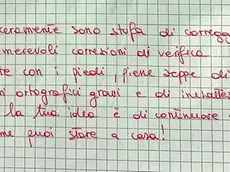 ceramente sono stufa di corregg
merevoli correzioni di verifica
te con i piedi, piene zeppe di
ri ortografici grossi e di inesattez
la tua idea è di continuare
me puoi stare a casa!